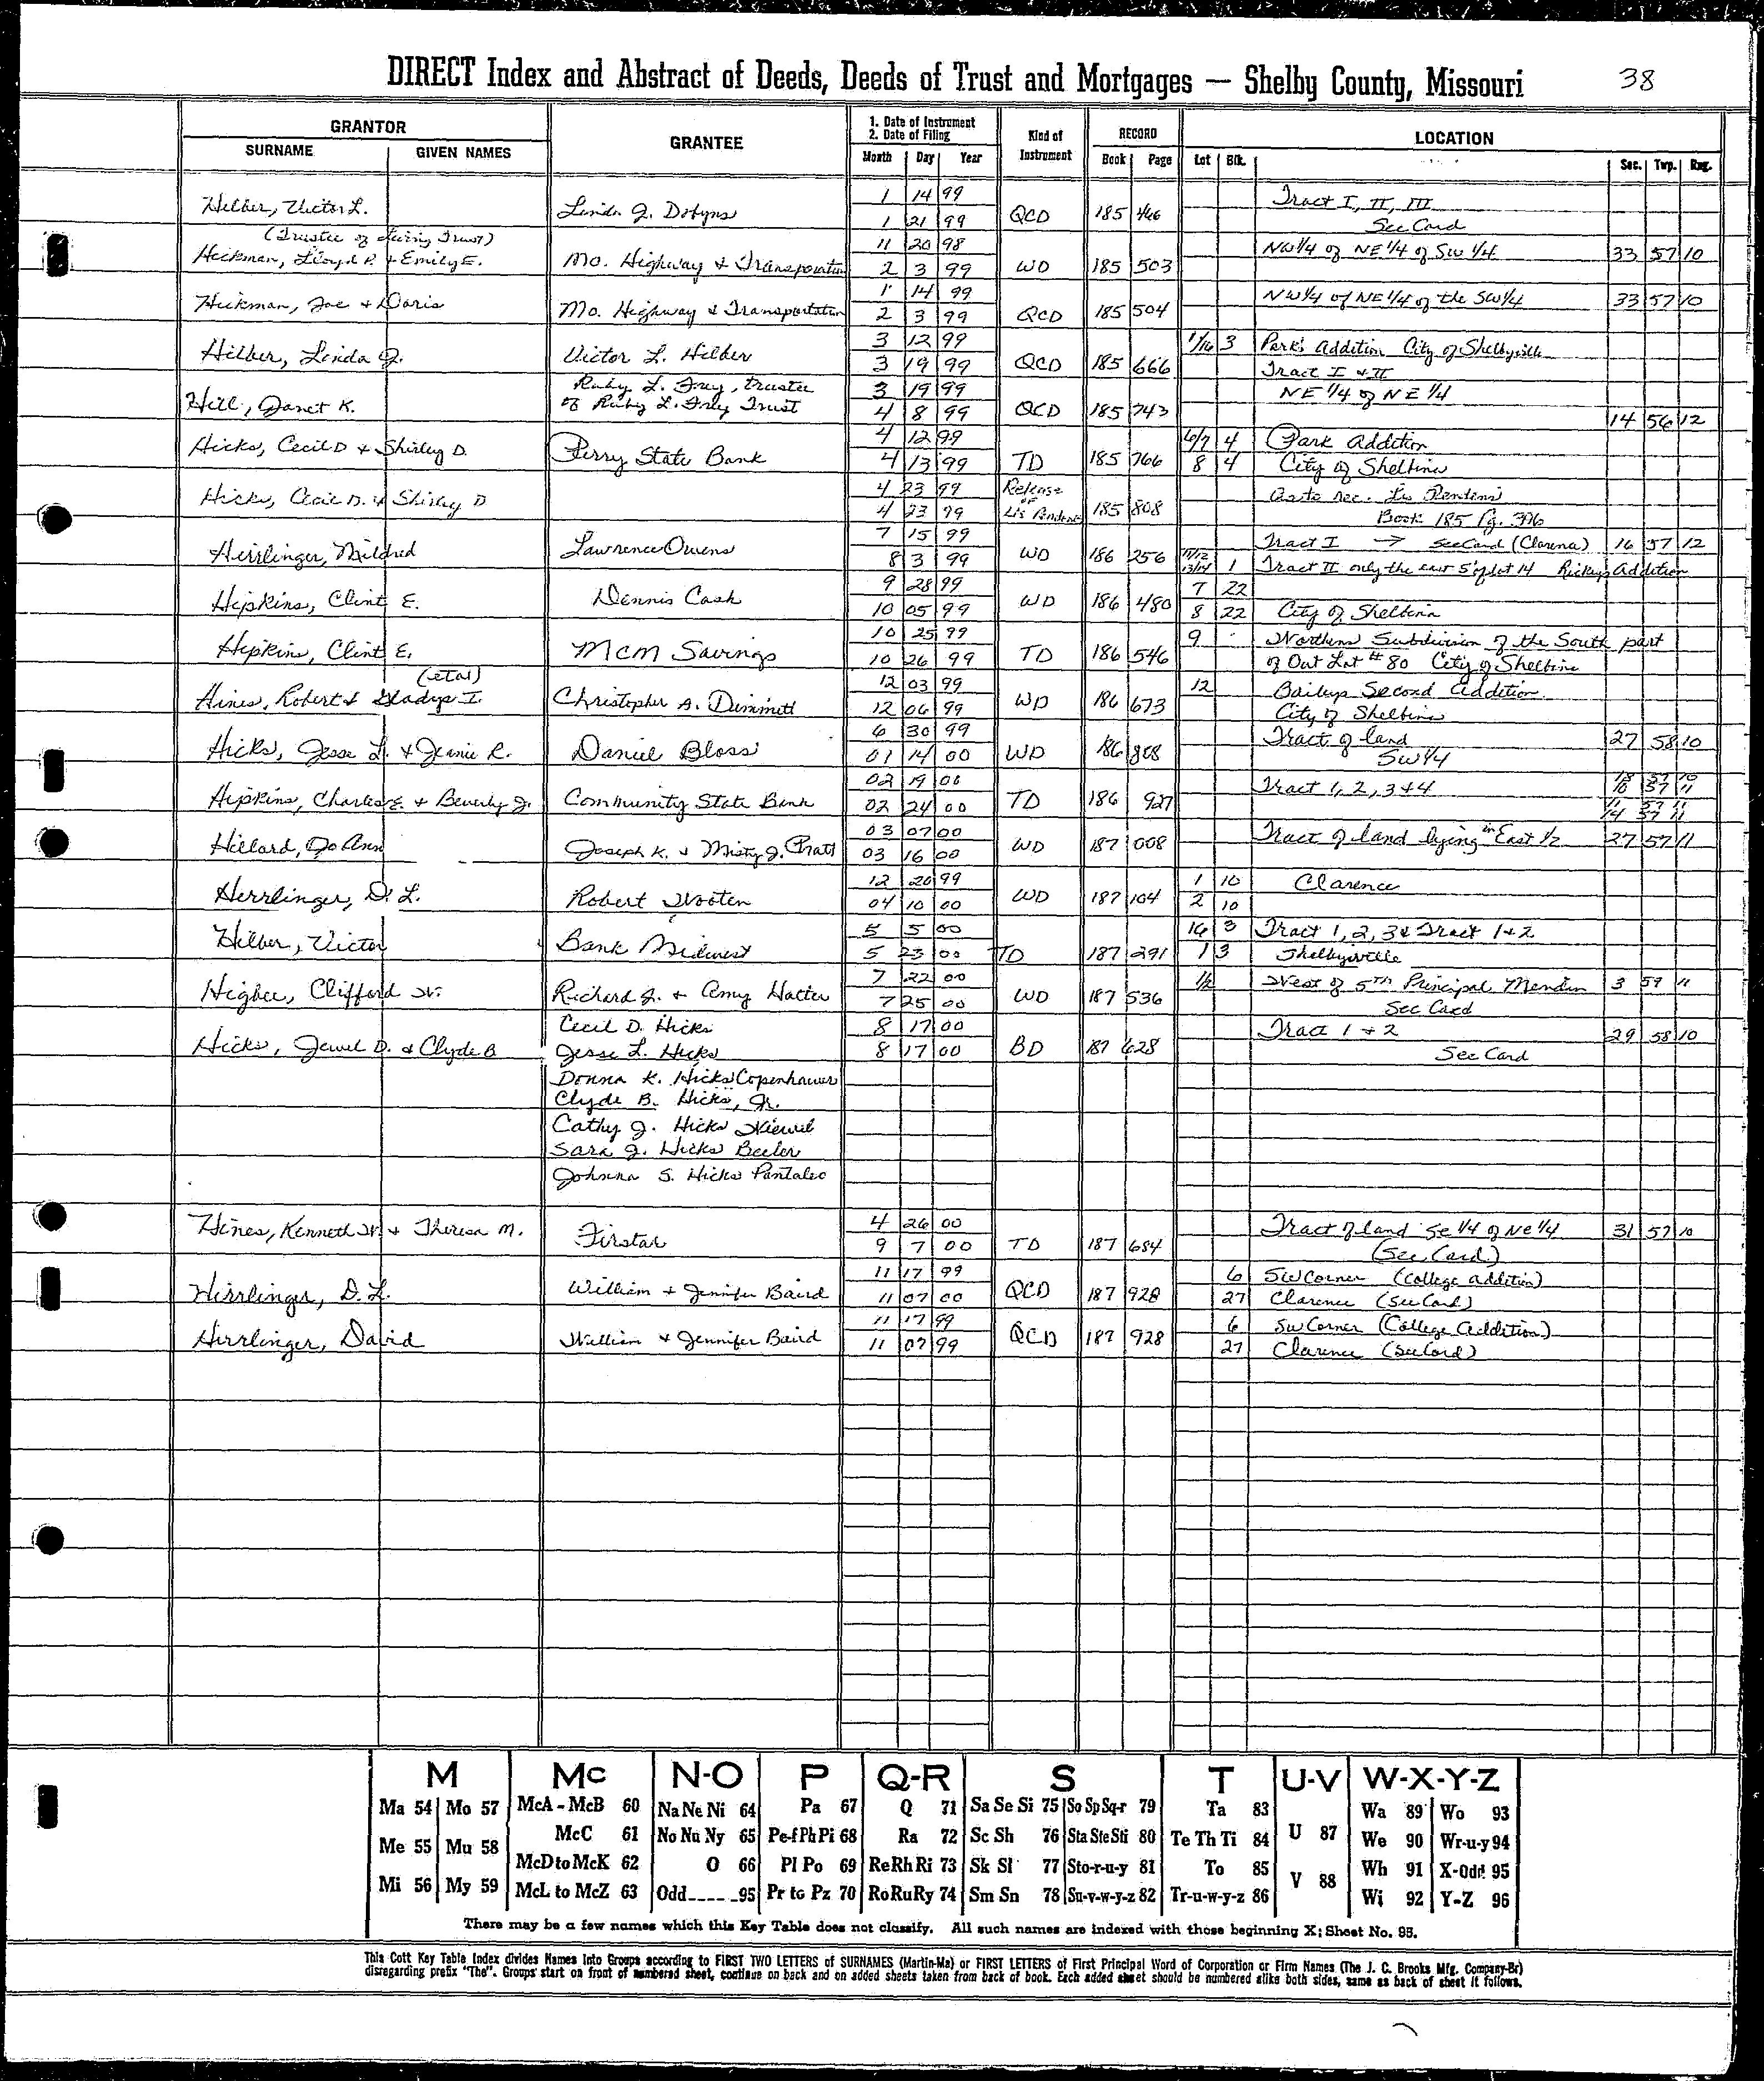 DIRECT Index and Abstract of Deeds, Deeds of Trust and Mortgages — Shelby County, Missouri 38
GRANTOR
SURNAME GIVEN NAMES
GRANTEE
1. Date of Instrument
2. Date of Filing
Month Day Year
Kind of Instrument
RECORD
Book Page
LOCATION
Lot Blk. Sec. Twp. Rng.
Hilber, Victor L. 1 14 99 Tract I, II, III
Linda J. Dobyns 1 21 99 QCD 185 466 See Card
(Trustee of Living Trust) 11 20 98 NW 1/4 of NE 1/4 of SW 1/4 33 57 10
Hickman, Lloyd R. & Emily E. Mo. Highway & Transportation 2 3 99 WD 185 503
Hickman, Joe & Doris 1 14 99 NW 1/4 of NE 1/4 of the SW 1/4 33 57 10
Mo. Highway & Transportation 2 3 99 QCD 185 504
3 12 99 1/16 3 Park's Addition City of Shelbyville
Hilber, Linda J. Victor L. Hilber 3 19 99 QCD 185 666 Tract I & II
Ruby L. Frey, trustee 3 19 99 NE 1/4 of NE 1/4
Hill, Janet K. of Ruby L. Frey Trust 4 8 99 QCD 185 743 14 56 12
Hicks, Cecil D & Shirley D. 4 12 99 6/7 4 Park Addition
Perry State Bank 4 13 99 TD 185 766 8 4 City of Shelbina
Hicks, Cecil D. & Shirley D 4 23 99 Release of Lis Pendens
4 23 99 185 808 as to rec. Lis Pendens
Book 185 Pg. 396
7 15 99 Tract I → See Card (Clarence) 16 57 12
Hirrlinger, Mildred Lawrence Owens 8 3 99 WD 186 256 11/12 13/14 1 Tract II only the east 5' of lot 14 Rickeys Addition
9 28 99 7 22
Hipkins, Clint E. Dennis Cash 10 05 99 WD 186 480 8 22 City of Shelbina
10 25 99 9 Northern Subdivision of the South part
Hipkins, Clint E. MCM Savings 10 26 99 TD 186 546 of Out Lot #80 City of Shelbina
(etal) 12 03 99 12 Baileys Second Addition
Hines, Robert & Gladys I. Christopher A. Dimmitt 12 06 99 WD 186 673 City of Shelbina
6 30 99 Tract of land 27 58 10
Hicks, Jesse L. & Jeanie R. Daniel Bloss 01 14 00 WD 186 808 SW 1/4
02 19 00 Tract 1, 2, 3 & 4 18 57 10
10 57 11
Hipkins, Charles E. & Beverly J. Community State Bank 02 24 00 TD 186 927 11 57 11
14 57 11
03 07 00 Tract of land lying in East 1/2 27 57 11
Hillard, Jo Ann Joseph K. & Misty J. Pratt 03 16 00 WD 187 008
12 20 99 1 10 Clarence
Herrlinger, D. L. Robert Wooten 04 10 00 WD 187 104 2 10
5 5 00 16 3 Tract 1, 2, 3 & Tract 1 & 2
Hilber, Victor Bank Midwest 5 23 00 TD 187 291 1 3 Shelbyville
7 22 00 1/2 West of 5th Principal Meridian 3 59 11
Higbee, Clifford W. Richard J. & Amy Hatter 7 25 00 WD 187 536 See Card
Cecil D. Hicks 8 17 00 Tract 1 & 2 29 58 10
Hicks, Jewel D. & Clyde B Jesse L. Hicks 8 17 00 BD 187 628 See Card
Donna K. Hicks Copenhaver
Clyde B. Hicks, Jr.
Cathy J. Hicks Kiewel
Sara J. Hicks Beeler
Johnna S. Hicks Pantaleo
Hines, Kenneth W. & Theresa M. 4 26 00 Tract of land SE 1/4 of NE 1/4 31 57 10
Firstar 9 7 00 TD 187 684 (See Card)
11 17 99 6 SW Corner (College Addition)
Hirrlinger, D. L. William & Jennifer Baird 11 07 00 QCD 187 928 27 Clarence (See Card)
11 17 99 6 SW Corner (College Addition)
Hirrlinger, David William & Jennifer Baird 11 07 99 QCD 187 928 27 Clarence (See Card)
M Mc N-O P Q-R S T U-V W-X-Y-Z
Ma 54 Mo 57 McA - McB 60 Na Ne Ni 64 Pa 67 Q 71 Sa Se Si 75 So Sp Sq-r 79 Ta 83 U 87 Wa 89 Wo 93
Me 55 Mu 58 McC 61 No Nu Ny 65 Pe-f Ph Pi 68 Ra 72 Sc Sh 76 Sta Ste Sti 80 Te Th Ti 84 We 90 Wr-u-y 94
McD to McK 62 O 66 Pl Po 69 Re Rh Ri 73 Sk Sl 77 Sto-r-u-y 81 To 85 V 88 Wh 91 X-Odd 95
Mi 56 My 59 McL to McZ 63 Odd 95 Pr to Pz 70 Ro Ru Ry 74 Sm Sn 78 Su-v-w-y-z 82 Tr-u-w-y-z 86 Wi 92 Y-Z 96
There may be a few names which this Key Table does not classify. All such names are indexed with those beginning X; Sheet No. 95.
This Cott Key Table Index divides Names into Groups according to FIRST TWO LETTERS of SURNAMES (Martin-Ma) or FIRST LETTERS of First Principal Word of Corporation or Firm Names (The J. C. Brooks Mfg. Company-Br)
disregarding prefix "The". Groups start on front of numbered sheet, continue on back and on added sheets taken from back of book. Each added sheet should be numbered alike both sides, same as back of sheet it follows.